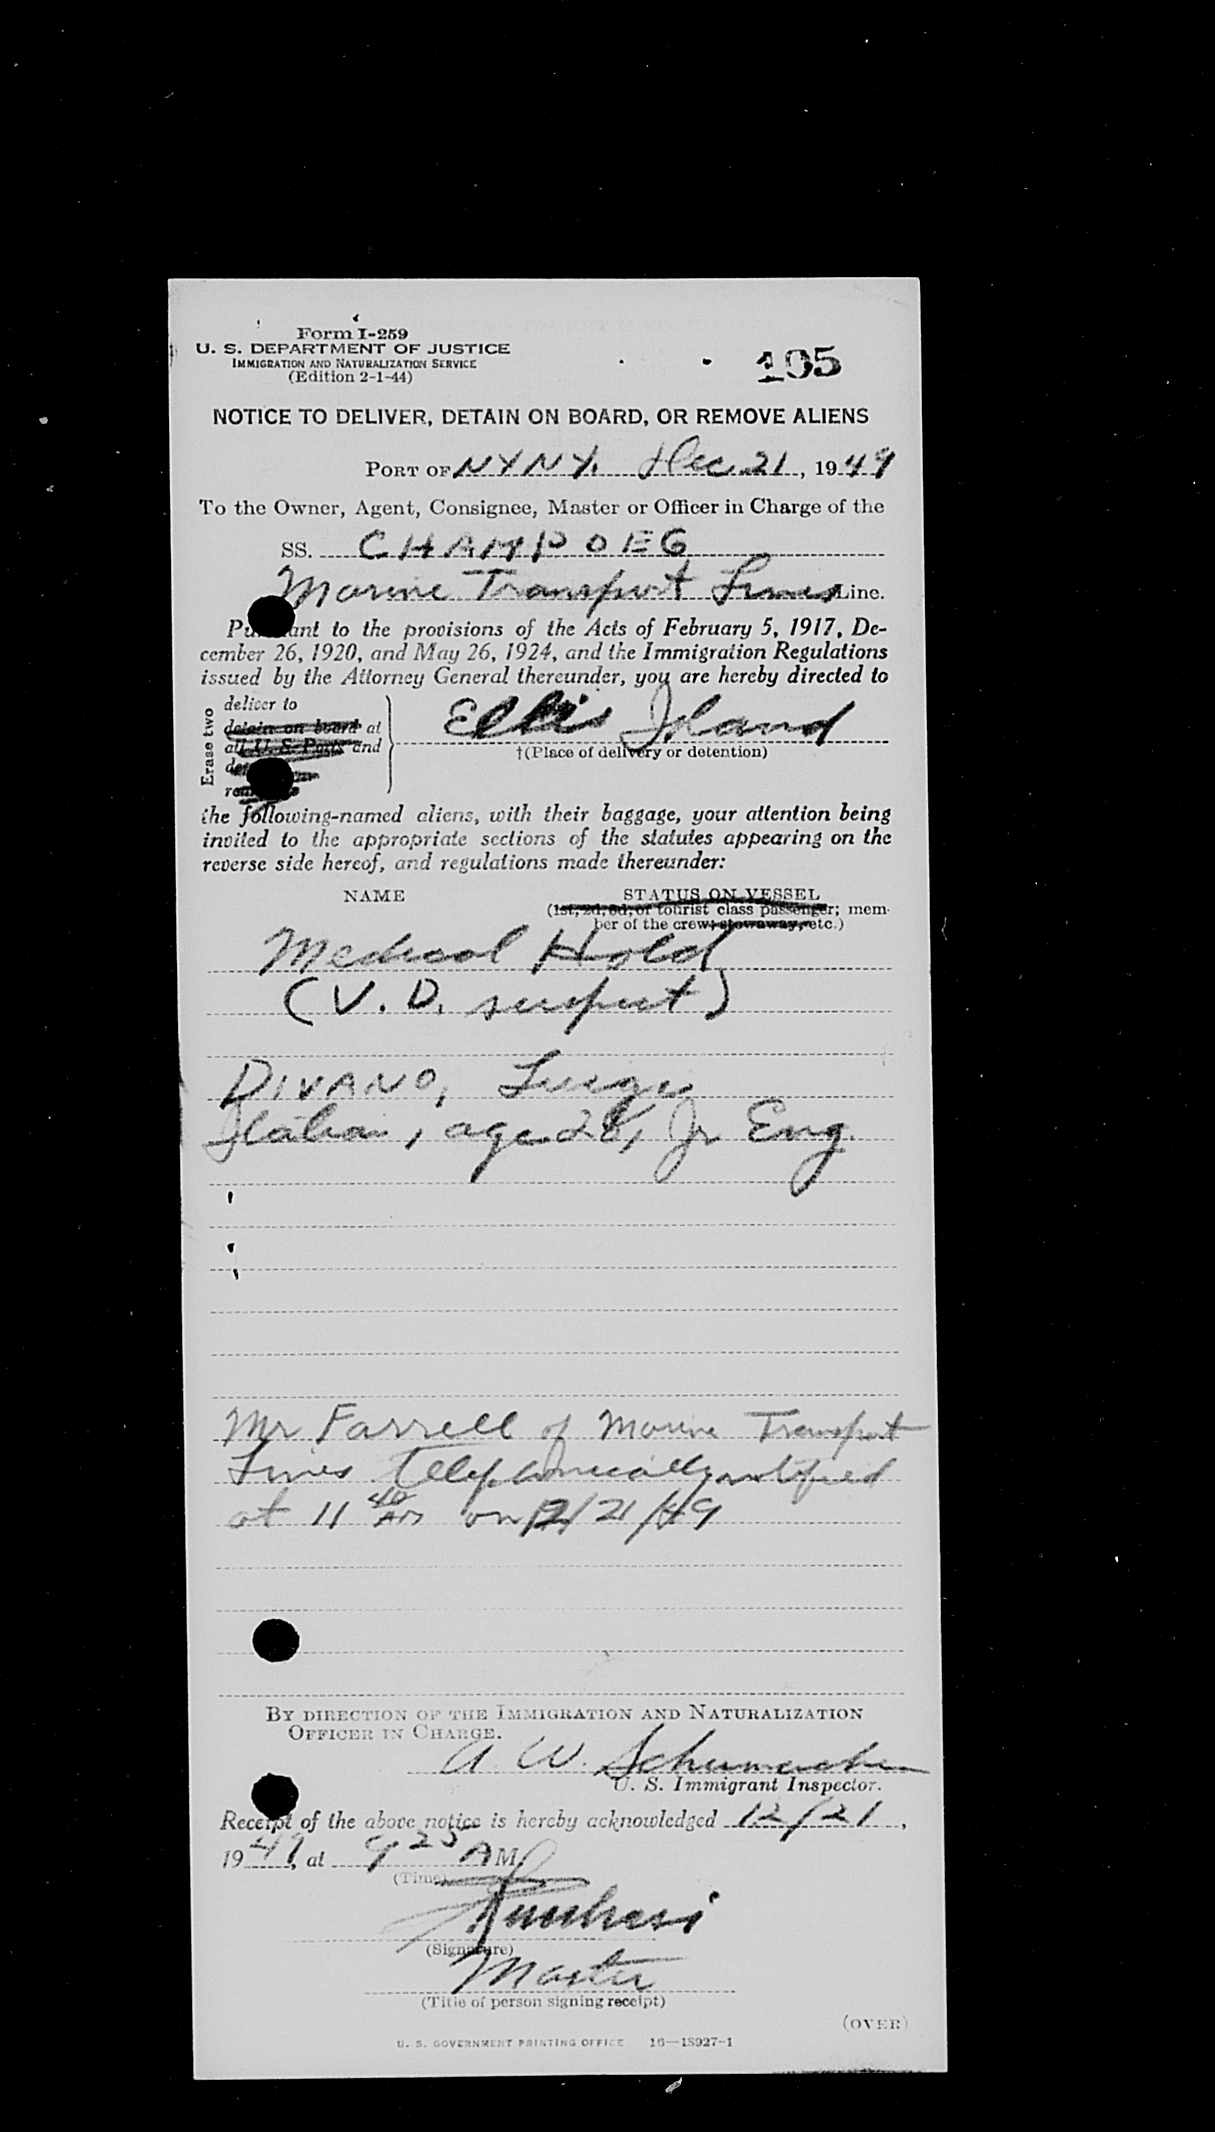 Form I-259
U. S. DEPARTMENT OF JUSTICE
IMMIGRATION AND NATURALIZATION SERVICE
(Edition 2-1-44)
195
NOTICE TO DELIVER, DETAIN ON BOARD, OR REMOVE ALIENS
PORT OF NYNY. Dec. 21, 1949
To the Owner, Agent, Consignee, Master or Officer in Charge of the
SS. CHAMPOEG
Marine Transport Lines Line.
Pursuant to the provisions of the Acts of February 5, 1917, De-
cember 26, 1920, and May 26, 1924, and the Immigration Regulations
issued by the Attorney General thereunder, you are hereby directed to
Erase two
deliver to
detain on board at
all U. S. Ports and
Ellis Island
†(Place of delivery or detention)
the following-named aliens, with their baggage, your attention being
invited to the appropriate sections of the statutes appearing on the
reverse side hereof, and regulations made thereunder:
NAME STATUS ON VESSEL
(1st, 2d, 3d, or tourist class passenger; mem-
ber of the crew; stowaway, etc.)
Medical Hold
(V. D. suspect)
DIVANO, Luigi
Italian, age 28, Jr Eng.
Mr Farrell of Marine Transport
Lines telephonically notified
at 11 40 AM on 12/21/49
BY DIRECTION OF THE IMMIGRATION AND NATURALIZATION
OFFICER IN CHARGE.
A. W. Schumacher
U. S. Immigrant Inspector.
Receipt of the above notice is hereby acknowledged 12/21,
1949, at 9 25 A M.
(Time)
(Signature)
Master
(Title of person signing receipt)
(OVER)
U. S. GOVERNMENT PRINTING OFFICE 16—18927-1